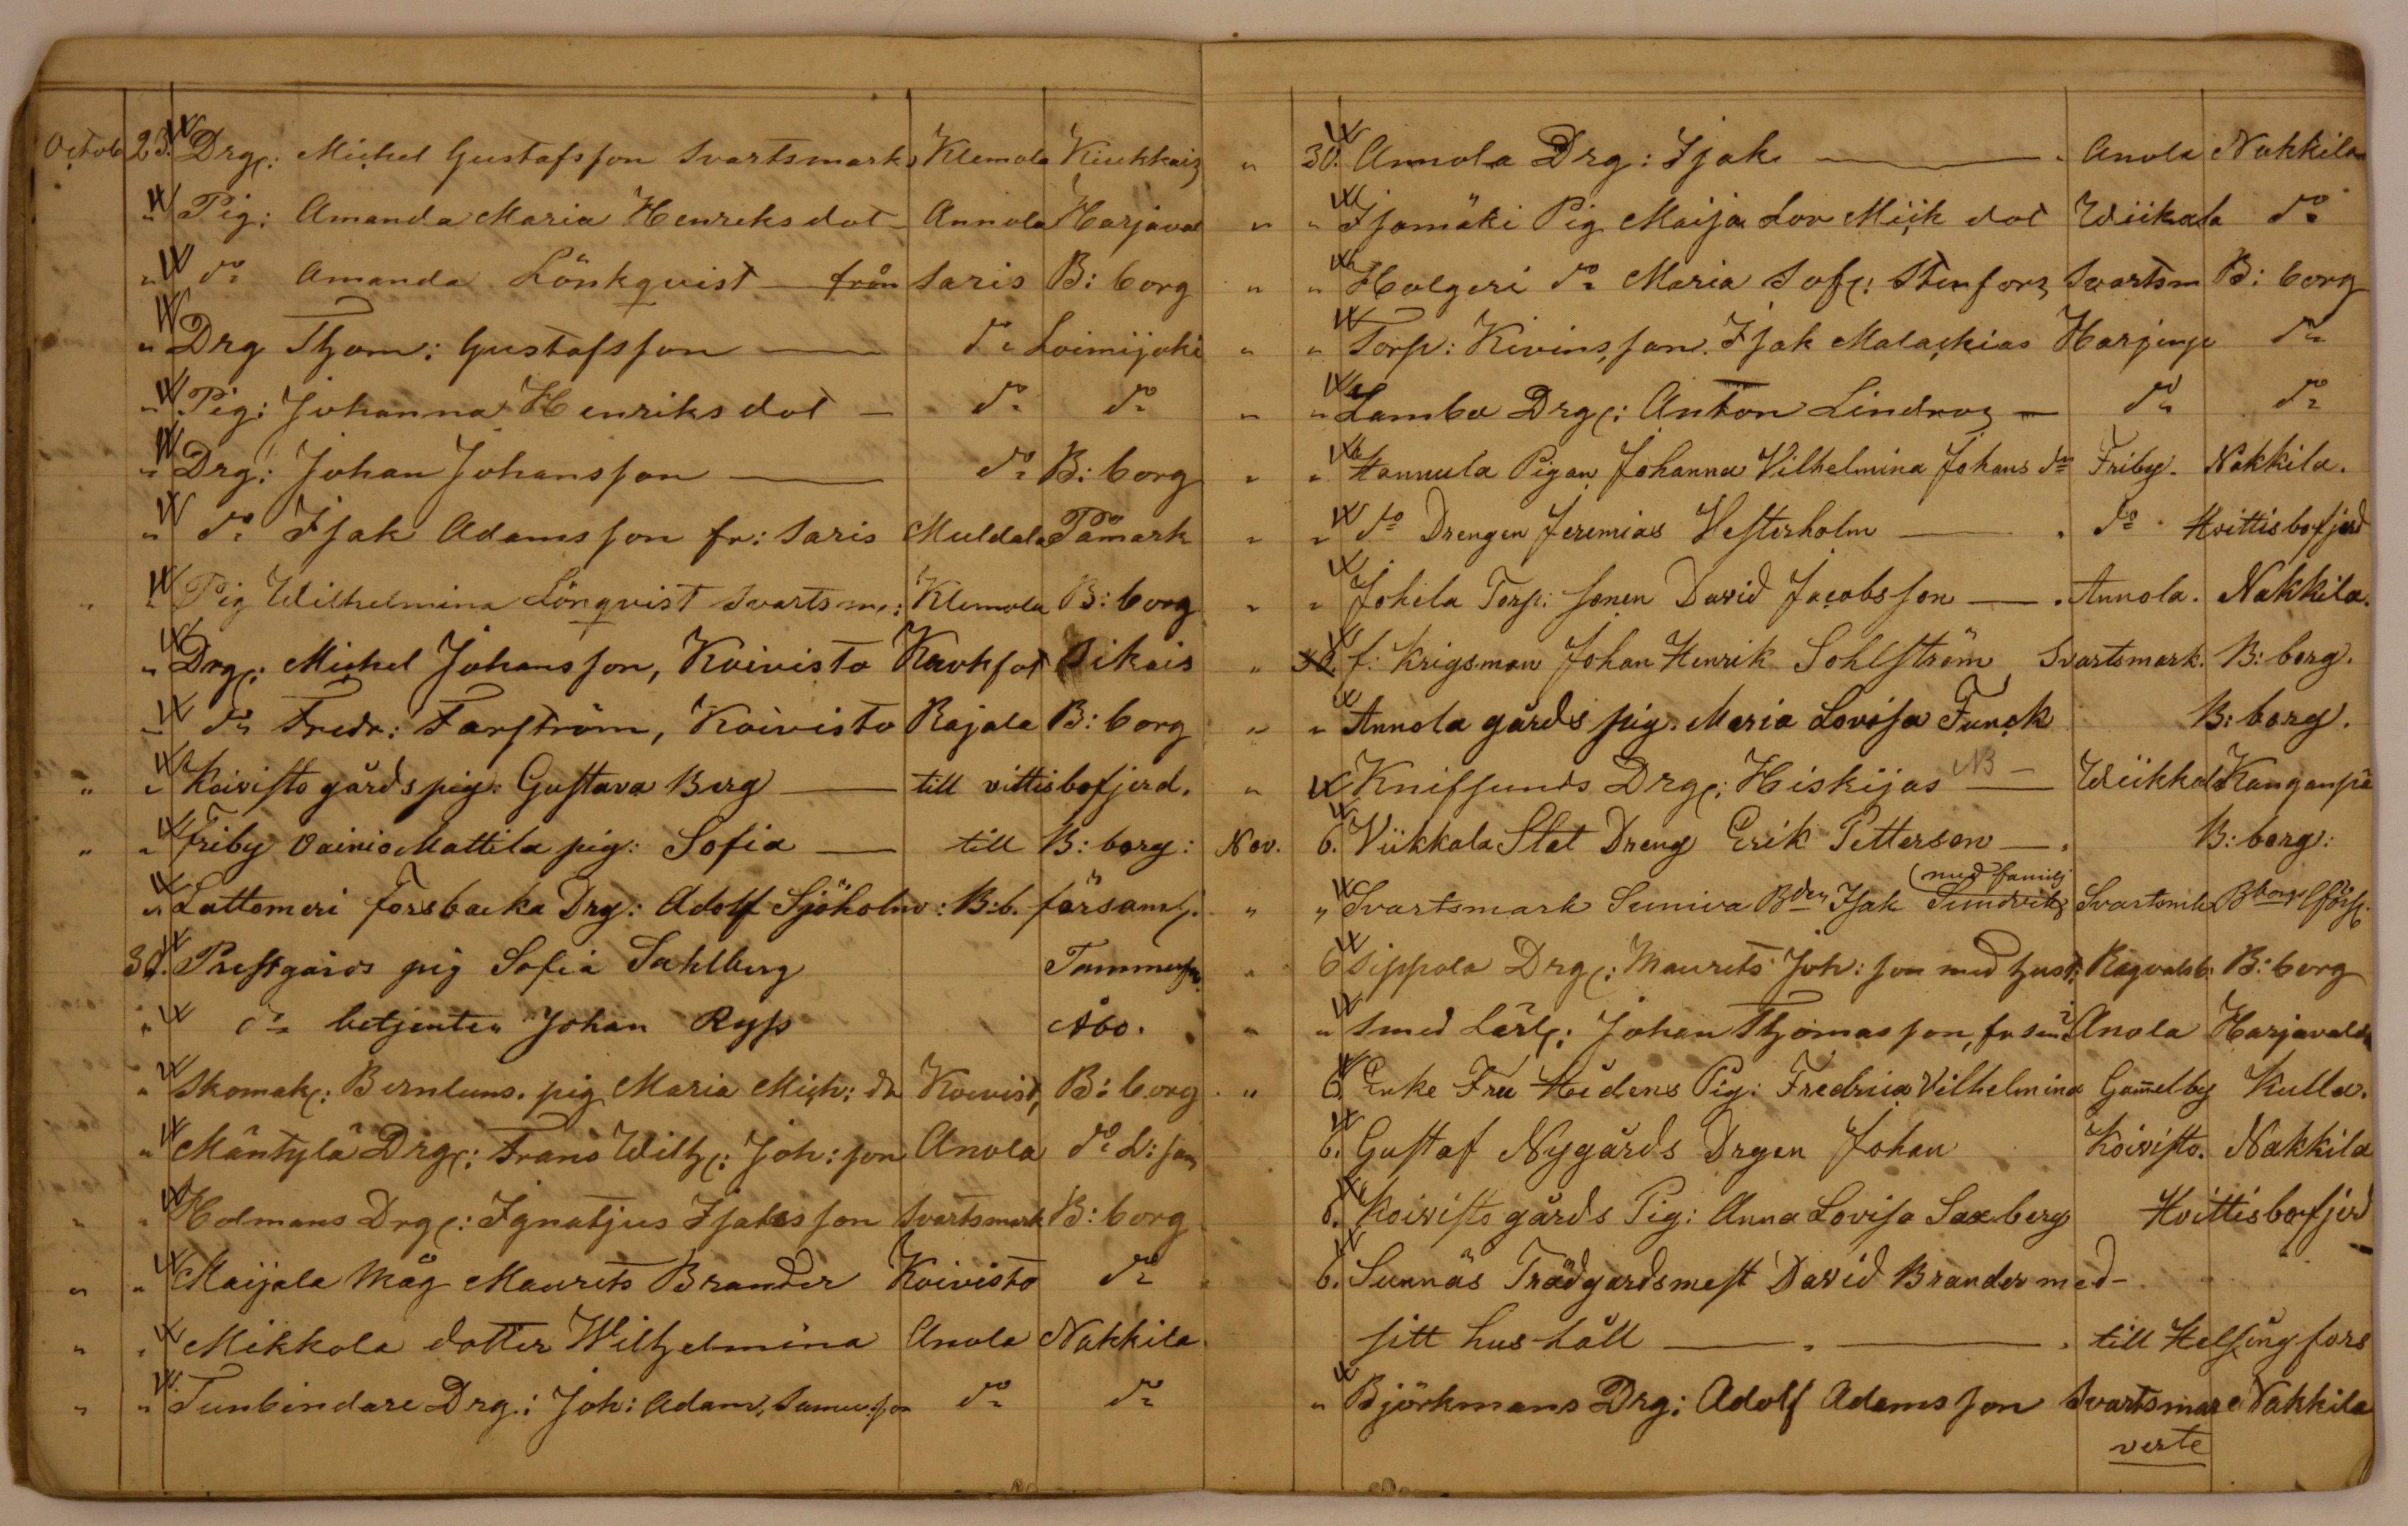 Octob 23. Drg: Michel Gustafsson Svartsmark, Klemola Kiukkais
" Pig: Amanda Maria Henriksdot - Annola Harjaval
" do Amanda Lönkqvist - från Saris B: borg
" Drg Thom: Gustafsson — do Loimijoki
" Pig: Johanna Henriksdot - do do
" Drg: Johan Johansson — do B: borg
" do Isak Adamsson fr: Saris Muldala Påmark
" " Pig Wilhelmina Lönqvist Svartsm: Klemola B: borg
" Drg: Michel Johansson, Koivisto Sikais
" do Fredr: Farström, Koivisto Rajala B: borg
" " Koivisto gårds pig: Gustava Berg — till vittisbofjerd.
" " Friby Vainio Mattila pig: Sofia — till B: borg:
" Lattomeri Forsbacka Drg: Adolf Sjöholm: B:b. församl.
30. Prestgårds pig Sofia Sahlberg Tammerfs
" do betjenten Johan Ryss Åbo.
" Skomak: Bernluns. pig Maria Mich: dr Koivist, B: borg
" Mäntylä Drg: Frans Wilh: Joh: son Anola do L: fs
" " Holmans Drg: Ignatjus Isaksson Svartsmark B: borg
" " Maijala Måg Maurits Brander Koivisto do
" " Mikkola dotter Wilhelmina Anola Nakkila.
" " Tunbindare Drg: Joh: Adam, Samu:son do do
" 30. Annola Drg: Isak — Anola Nakkila
" " Isomäki Pig Maija Lov Mick dot Wiikala do
" " Holgeri do Maria Sof: Stenfors Svartsm B: borg
" " Torp: Kivins son. Isak Malackias Harjunp do
" " Lamba Drg: Anton Lindros - do do
" " Hannula Pigan Johanna Vilhelmina Johans dr Friby. Nakkila.
" " do Drengen Jeremias Vesterholm — do Hvittisbofjerd
" " Johila Torp: sonen David Jacobsson — Annola. Nakkila.
" 30. f: Krigsman Johan Henrik Sohlström Svartsmark. B: borg.
" " Annola gårds pig. Maria Lovisa Funck B: borg.
" Knifsunds Drg: Hiskijas NB — Wiikkala Kanganpä
Nov. 6. Viikkala Stat Dreng Erik Petterson — B: borg:
(med familj
" " Svartsmark Suniva Bden Isak Sundvik Svartsmk Bborgs lförs.
" 6 Sippola Drg: Maurits Joh: son med hust: Ragvalsb. B: borg
" " Smed Lärl: Johan Thomasson, Anola Harjavalda
" 6. Enke Fru Hedens Pig: Fredrica Vilhelmina Gamelby Kulla.
6. Gustaf Nygårds Drgen Johan Koivisto. Nakkila
6. Koivisto gårds Pig: Anna Lovisa Saxberg Hvittisbofjerd
6. Sunnäs Trädgardsmest David Brander med-
sitt hushåll — till Helsingfors
" Björkmans Drg: Adolf Adamsson Svartsmar Nakkila
verte